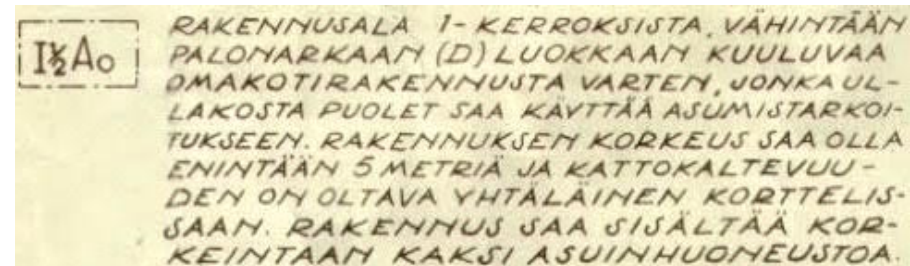 I½Ao
RAKENNUSALA 1-KERROKSISTA, VÄHINTÄÄN
PALONARKAAN (D) LUOKKAAN KUULUVAA
OMAKOTIRAKENNUSTA VARTEN, JONKA UL-
LAKOSTA PUOLET SAA KÄYTTÄÄ ASUMISTARKOI-
TUKSEEN. RAKENNUKSEN KORKEUS SAA OLLA
ENINTÄÄN 5 METRIÄ JA KATTOKALTEVUU-
DEN ON OLTAVA YHTÄLÄINEN KORTTELIS-
SAAN. RAKENNUS SAA SISÄLTÄÄ KOR-
KEINTAAN KAKSI ASUINHUONEUSTOA.